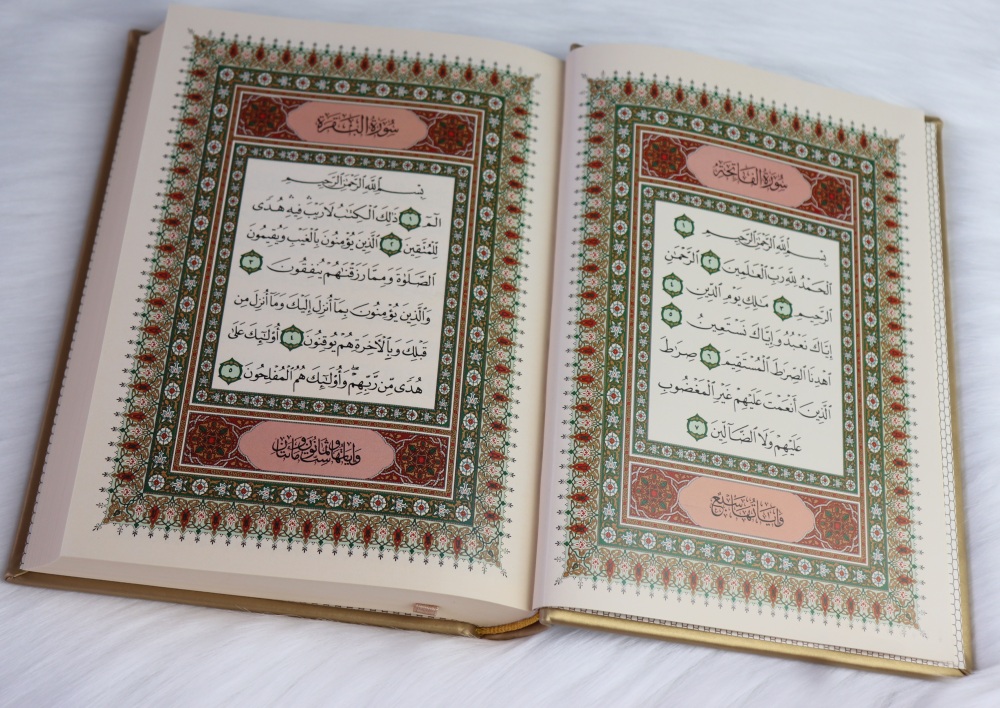 سُورَةُ الفَاتِحَةِ
بِسْمِ ٱللَّهِ ٱلرَّحْمَٰنِ ٱلرَّحِيمِ ١
ٱلْحَمْدُ لِلَّهِ رَبِّ ٱلْعَٰلَمِينَ ٢ ٱلرَّحْمَٰنِ
ٱلرَّحِيمِ ٣ مَٰلِكِ يَوْمِ ٱلدِّينِ ٤
إِيَّاكَ نَعْبُدُ وَإِيَّاكَ نَسْتَعِينُ ٥
ٱهْدِنَا ٱلصِّرَٰطَ ٱلْمُسْتَقِيمَ ٦ صِرَٰطَ
ٱلَّذِينَ أَنْعَمْتَ عَلَيْهِمْ غَيْرِ ٱلْمَغْضُوبِ
عَلَيْهِمْ وَلَا ٱلضَّآلِّينَ ٧
وَآيَاتُهَا سَبْعٌ
سُورَةُ البَقَرَةِ
بِسْمِ ٱللَّهِ ٱلرَّحْمَٰنِ ٱلرَّحِيمِ
الٓمٓ ١ ذَٰلِكَ ٱلْكِتَٰبُ لَا رَيْبَ ۛ فِيهِ ۛ هُدًى
لِّلْمُتَّقِينَ ٢ ٱلَّذِينَ يُؤْمِنُونَ بِٱلْغَيْبِ وَيُقِيمُونَ
ٱلصَّلَوٰةَ وَمِمَّا رَزَقْنَٰهُمْ يُنفِقُونَ ٣
وَٱلَّذِينَ يُؤْمِنُونَ بِمَآ أُنزِلَ إِلَيْكَ وَمَآ أُنزِلَ مِن
قَبْلِكَ وَبِٱلْءَاخِرَةِ هُمْ يُوقِنُونَ ٤ أُو۟لَٰٓئِكَ عَلَىٰ
هُدًى مِّن رَّبِّهِمْ ۖ وَأُو۟لَٰٓئِكَ هُمُ ٱلْمُفْلِحُونَ ٥
وَآيَاتُهَا سِتٌّ وَثَمَانُونَ وَمِائَتَانِ